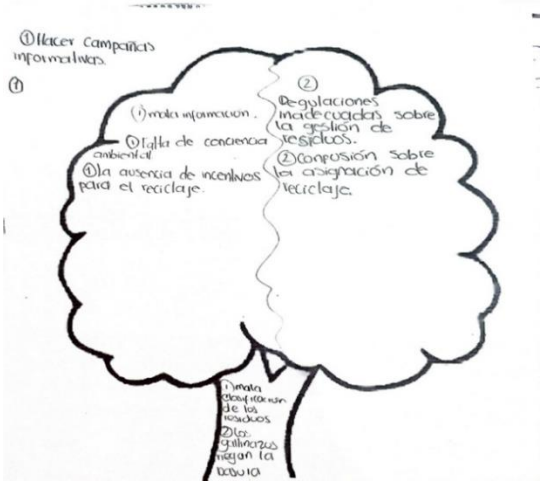 ① Hacer Campañas
informativas.
①
① mala informacion.
① Falta de conciencia
ambiental
① la ausencia de incentivos
para el reciclaje.
②
Regulaciones
inadecuadas sobre
la gestión de
residuos.
② Confusión sobre
la asignación de
reciclaje.
① mala
clasificacion
de los
residuos
② los
gallinazos
riegan la
basura